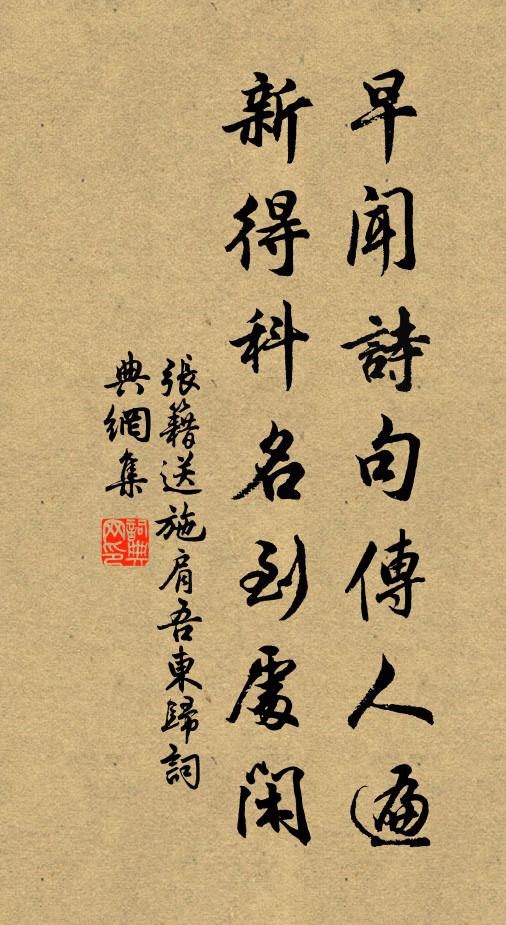 早聞詩句傳人遍
新得科名到處閑
張籍送施肩吾東歸詞
典網集
詞典网印